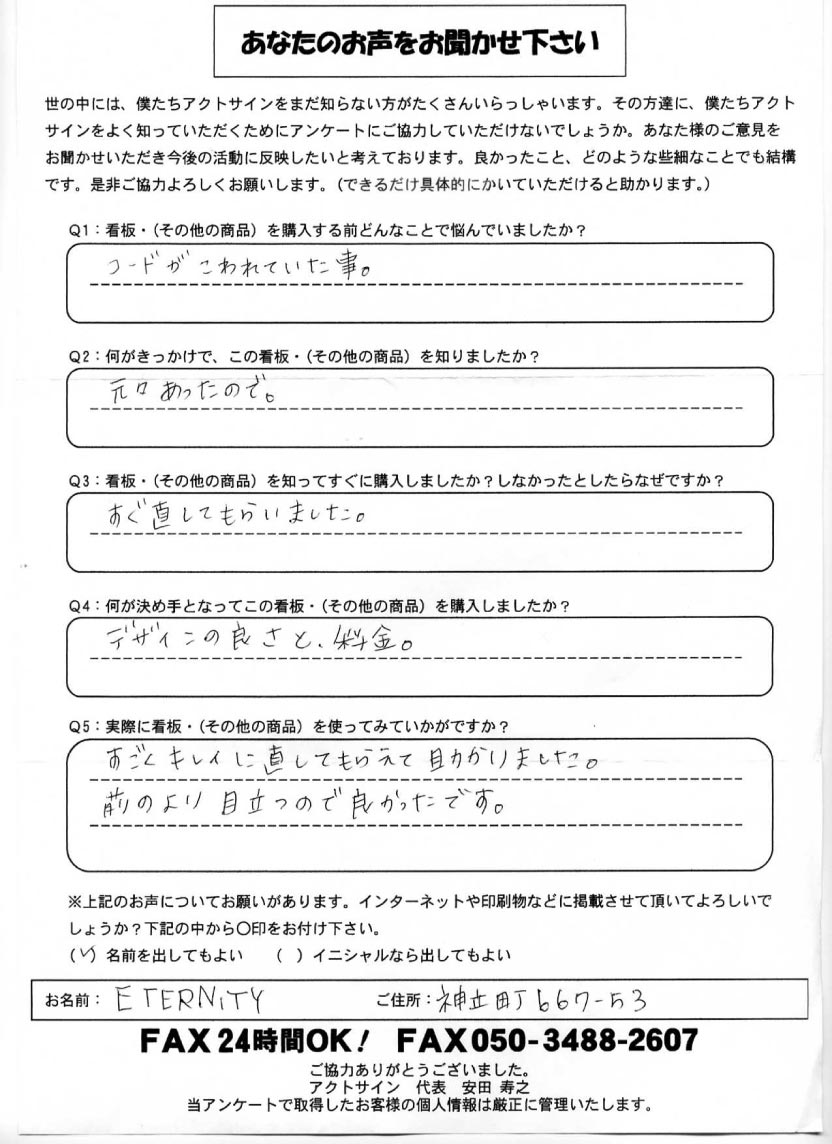 あなたのお声をお聞かせ下さい
世の中には、僕たちアクトサインをまだ知らない方がたくさんいらっしゃいます。その方達に、僕たちアクト
サインをよく知っていただくためにアンケートにご協力していただけないでしょうか。あなた様のご意見を
お聞かせいただき今後の活動に反映したいと考えております。良かったこと、どのような些細なことでも結構
です。是非ご協力よろしくお願いします。（できるだけ具体的にかいていただけると助かります。）
Q1：看板・（その他の商品）を購入する前どんなことで悩んでいましたか？
コードがこわれていた事。
Q2：何がきっかけで、この看板・（その他の商品）を知りましたか？
元々あったので。
Q3：看板・（その他の商品）を知ってすぐに購入しましたか？しなかったとしたらなぜですか？
すぐ直してもらいました。
Q4：何が決め手となってこの看板・（その他の商品）を購入しましたか？
デザインの良さと、料金。
Q5：実際に看板・（その他の商品）を使ってみていかがですか？
すごくキレイに直してもらえて助かりました。
前のより目立つので良かったです。
※上記のお声についてお願いがあります。インターネットや印刷物などに掲載させて頂いてよろしいで
しょうか？下記の中から〇印をお付け下さい。
（✓）名前を出してもよい （ ）イニシャルなら出してもよい
お名前： ETERNiTY ご住所：神立町667-53
FAX24時間OK！ FAX050-3488-2607
ご協力ありがとうございました。
アクトサイン 代表 安田 寿之
当アンケートで取得したお客様の個人情報は厳正に管理いたします。